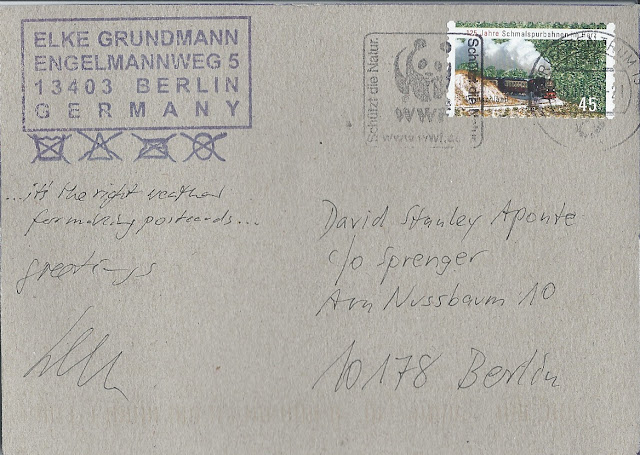 ELKE GRUNDMANN
ENGELMANNWEG 5
13403 BERLIN
GERMANY
Schützt die Natur.
WWF
www.wwf.de
125 Jahre Schmalspurbahnen im Harz
45
...it's the right weather
for making postcards...
greetings
David Stanley Aponte
c/o Sprenger
Am Nussbaum 10
10178 Berlin